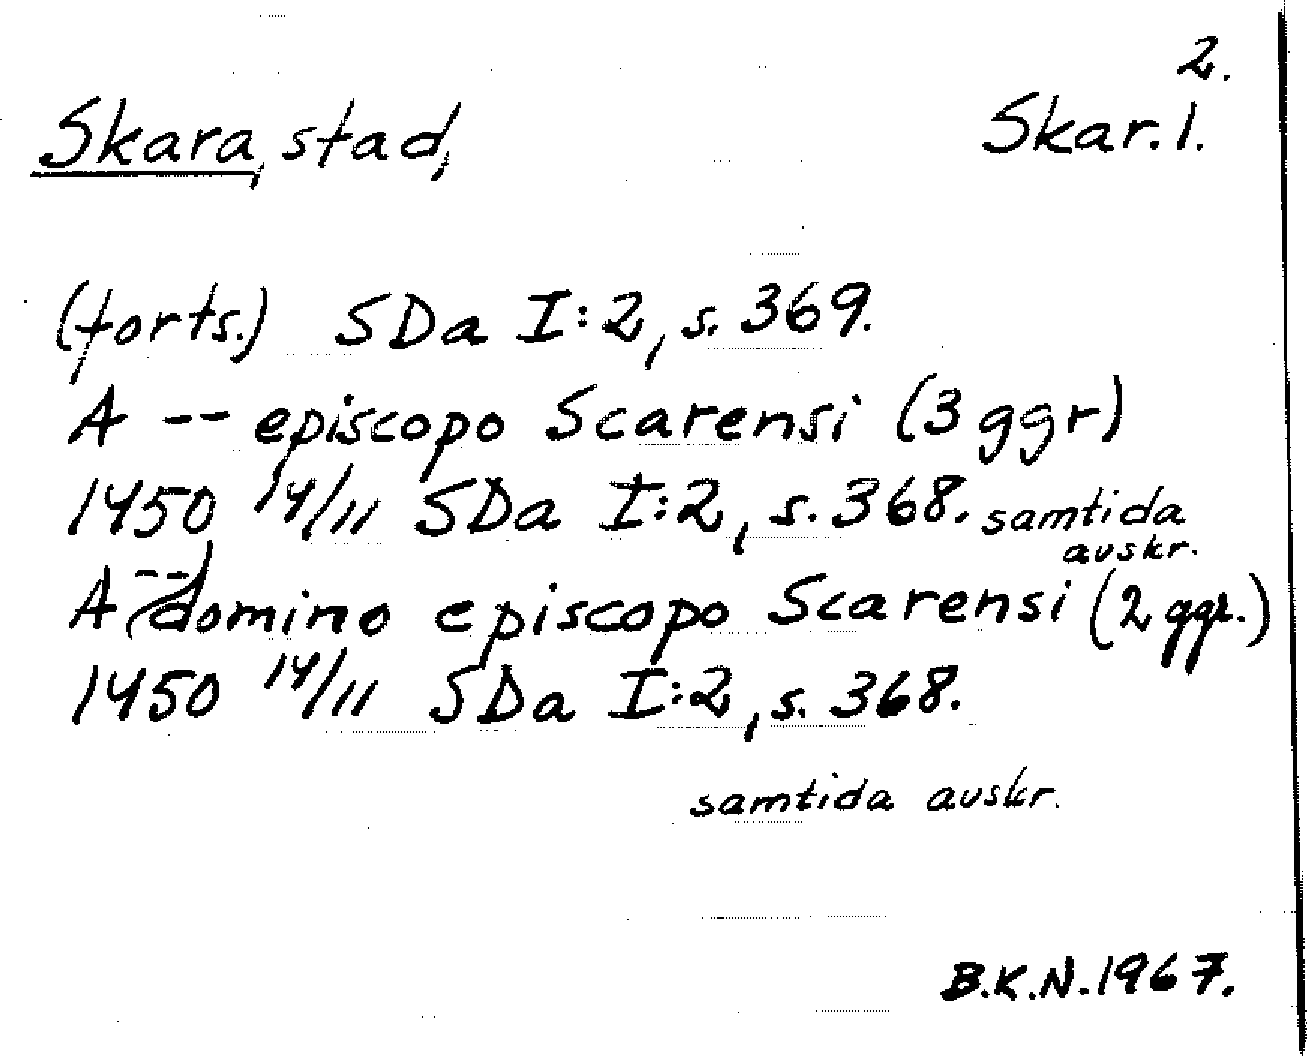 2.
Skara, stad, Skar. 1.
(forts.) SDa I:2, s. 369.
A -- episcopo Scarensi (3 ggr)
1450 14/11 SDa I:2, s. 368. samtida
avskr.
A -- domino episcopo Scarensi (2 ggr.)
1450 14/11 SDa I:2, s. 368.
samtida avskr.
B.K.N. 1967.